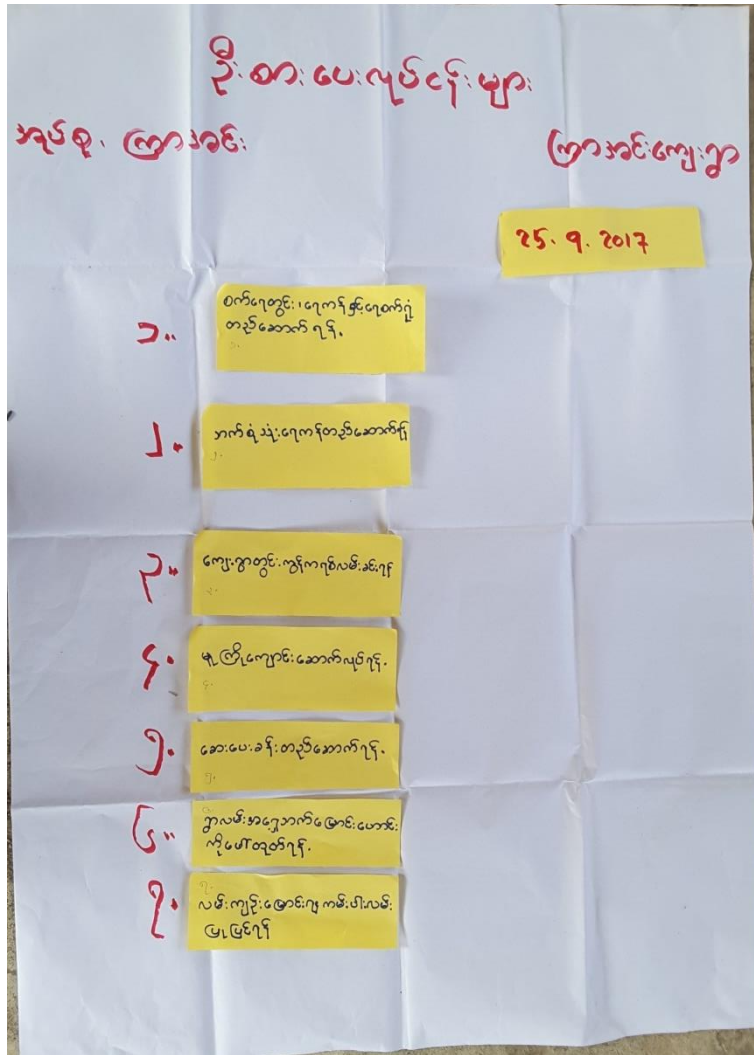 ဦးစားပေးလုပ်ငန်းများ
အုပ်စု၊ ကြာအင်း ကြာအင်းကျေးရွာ
25. 9. 2017
၁။ စက်ရေတွင်း၊ ရေကန်နှင့်ရေစက်ရုံ
တည်ဆောက်ရန်.
၂။ ဘက်စုံသုံးရေကန်တည်ဆောက်ရန်
၃။ ကျေးရွာတွင်းကွန်ကရစ်လမ်းခင်းရန်
၄။ မူကြိုကျောင်းဆောက်လုပ်ရန်.
၅။ ဆေးပေးခန်းတည်ဆောက်ရန်.
၆။ ရွာလမ်းအရှေ့ဘက်မြောင်းဟောင်း
ကိုဖော်ထုတ်ရန်.
၇။ လမ်းကျဉ်းမြောင်း၍ကမ်းပါးလမ်း
ပြုပြင်ရန်